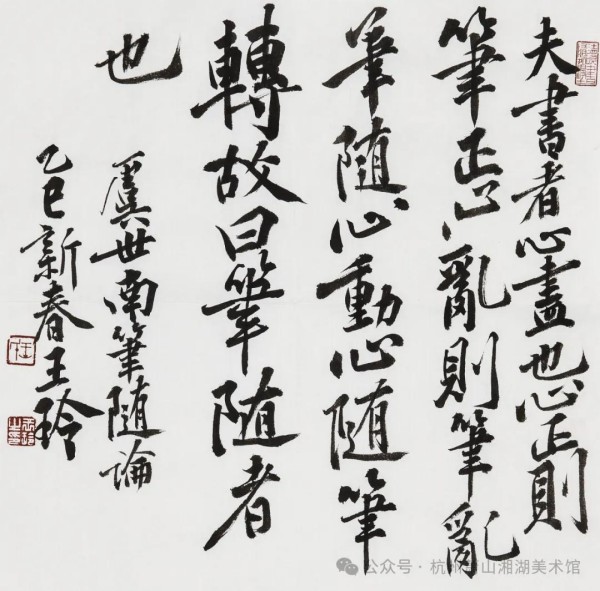 夫書者心畫也心正則
筆正心亂則筆亂
筆随心動心随筆
轉故曰筆随者
也
虞世南筆随論
乙巳新春王玲
公众号·杭州萧山湘湖美术馆